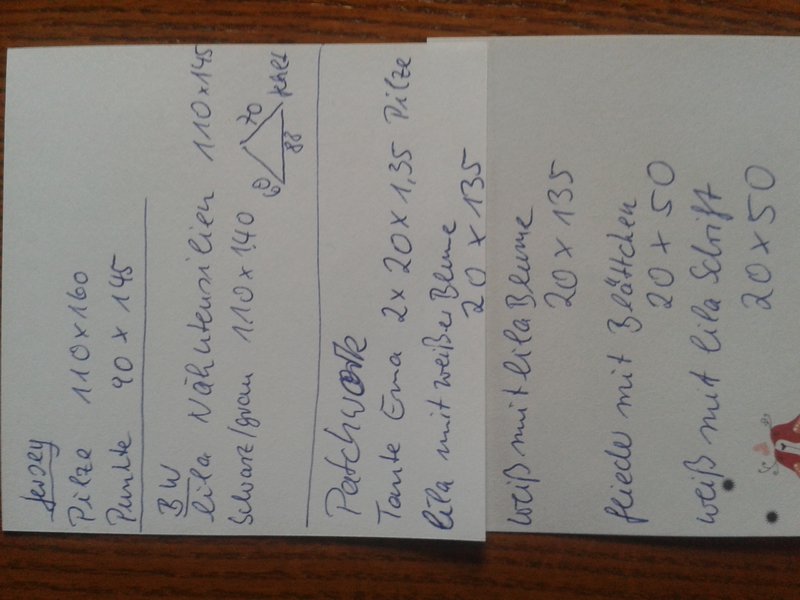 Jersey
Pilze 110x160
Punkte 90 x 145
BW
lila Nähutensilien 110x145
Schwarz/grau 110x1,40
60 70
88
Patchwork
Tante Ema 2x 20x1,35 Pilze
lila mit weißer Blume
20 x 135
weiß mit lila Blume
20x135
flieder mit Blättchen
20 x 50
weiß mit lila Schrift
20x50